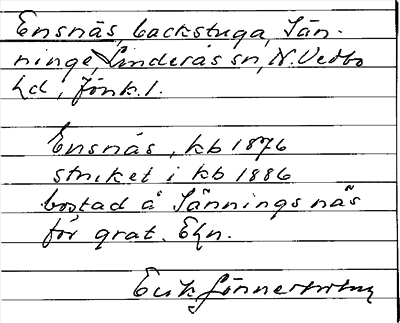 Ensnäs, backstuga, Sän-
ninge, Linderås sn, N. Vedbo
hd, Jönk. l.
Ensnäs, kb 1876
struket i kb 1886
bostad å Sänningsnäs
för grat. Ekn.
Erik